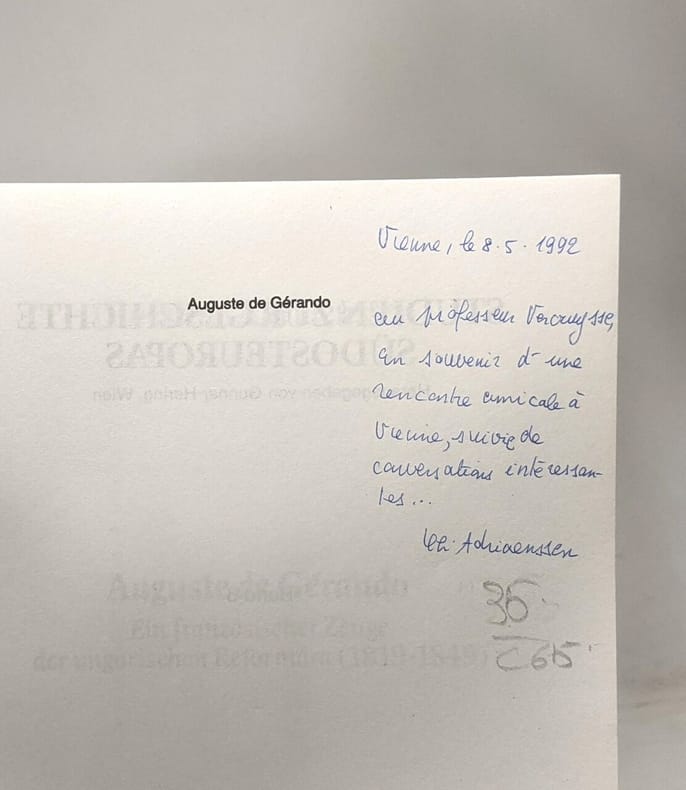 Vienne, le 8.5.1992
Auguste de Gérando
au professeur Vercruysse,
en souvenir d'une
rencontre amicale à
Vienne, suivie de
conversations intéressan-
tes...
Ch. Adriaenssen
STUDIEN ZUR GESCHICHTE
SÜDOSTEUROPAS
Herausgegeben von Gunnar Hering, Wien
Auguste de Gérando
Ein französischer Zeuge
der ungarischen Reformära (1819-1849)
36
C65